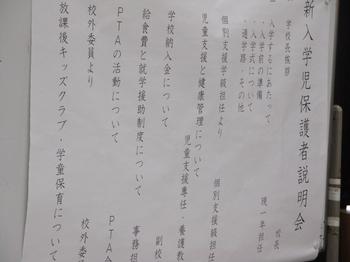 新入学児保護者説明会
学校長挨拶
校長
入学するにあたって
現一年担任
・入学前の準備
・入学式について
・通学路・その他
個別支援学級担任より
個別支援級担任
児童支援と健康管理について
児童支援専任・養護教
学校納入金について
副校
給食費と就学援助制度について
事務担
PTAの活動について
PTA会
校外委員より
校外委
放課後キッズクラブ・学童保育について